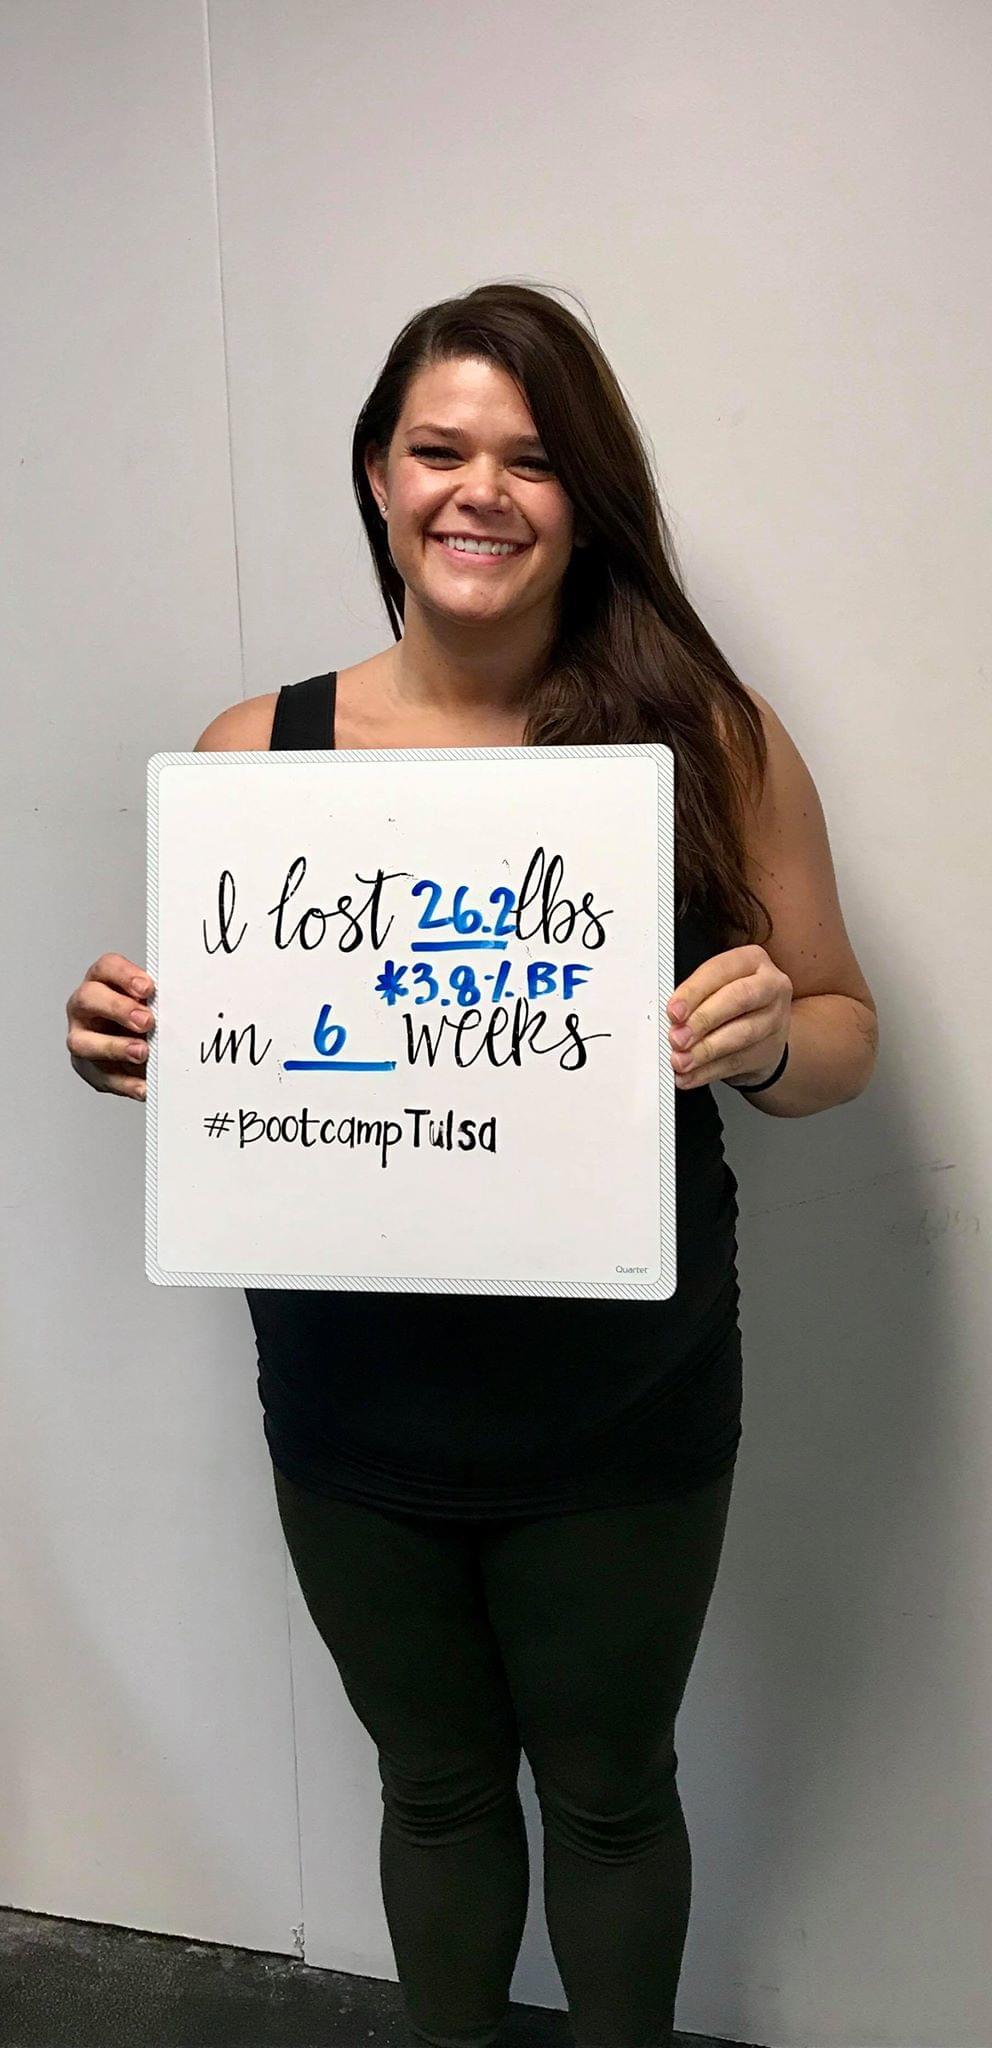 I lost 26.2lbs
*3.8% BF
in 6 weeks
#BootcampTulsa
Quartet